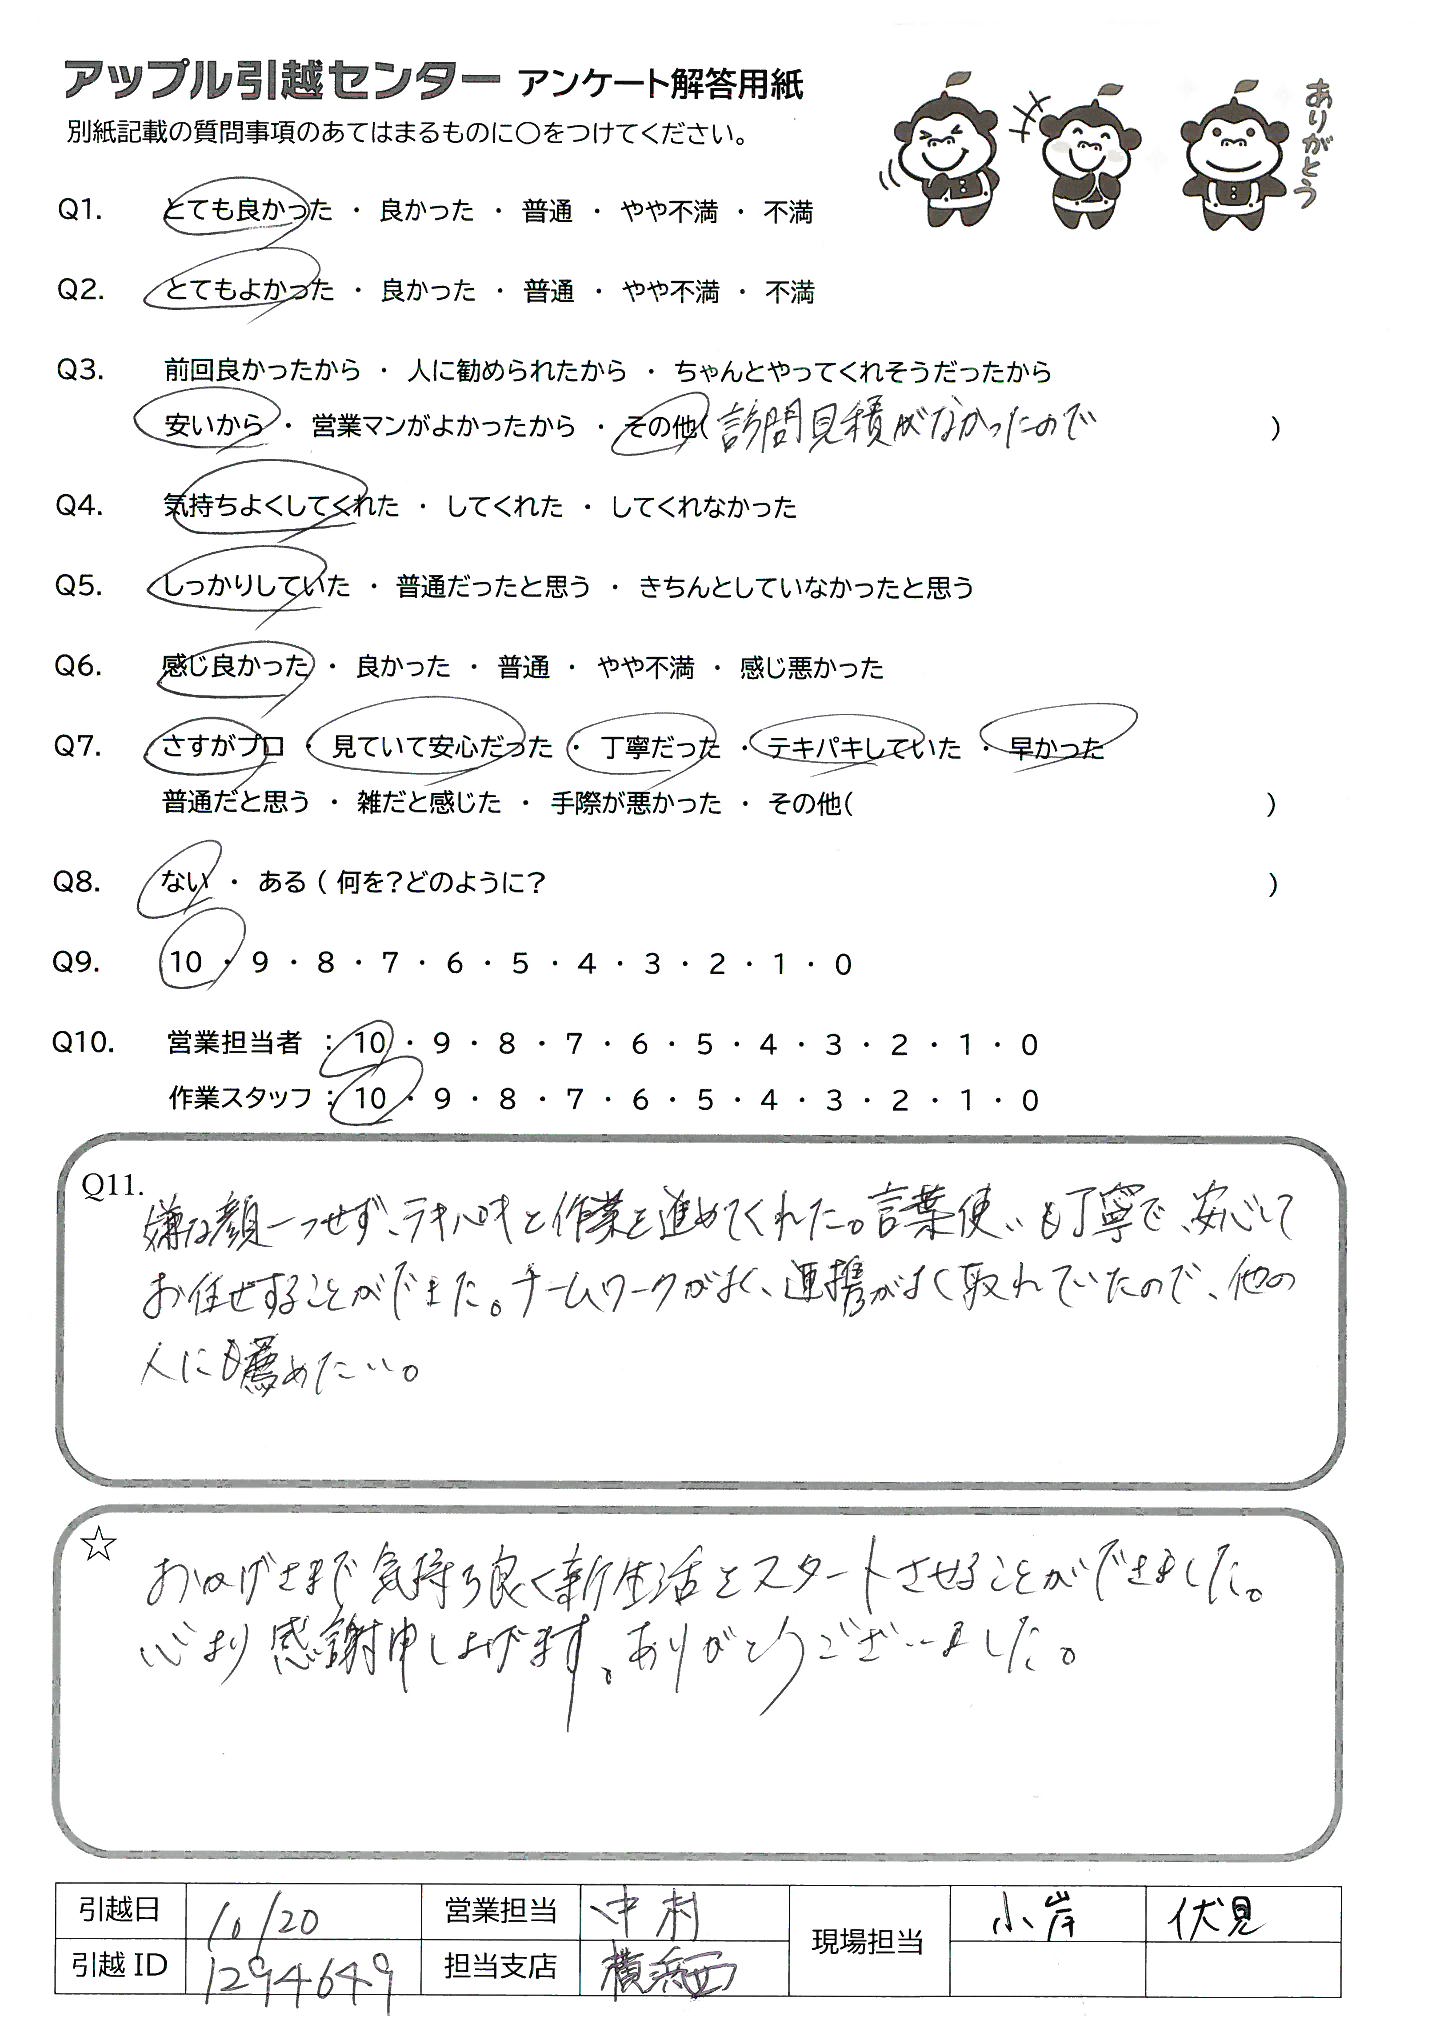 アップル引越センター アンケート解答用紙
別紙記載の質問事項のあてはまるものに○をつけてください。
ありがとう
Q1. とても良かった ・ 良かった ・ 普通 ・ やや不満 ・ 不満
Q2. とてもよかった ・ 良かった ・ 普通 ・ やや不満 ・ 不満
Q3. 前回良かったから ・ 人に勧められたから ・ ちゃんとやってくれそうだったから
安いから ・ 営業マンがよかったから ・ その他( 訪問見積がなかったので )
Q4. 気持ちよくしてくれた ・ してくれた ・ してくれなかった
Q5. しっかりしていた ・ 普通だったと思う ・ きちんとしていなかったと思う
Q6. 感じ良かった ・ 良かった ・ 普通 ・ やや不満 ・ 感じ悪かった
Q7. さすがプロ ・ 見ていて安心だった ・ 丁寧だった ・ テキパキしていた ・ 早かった
普通だと思う ・ 雑だと感じた ・ 手際が悪かった ・ その他( )
Q8. ない ・ ある ( 何を?どのように? )
Q9. 10 ・ 9 ・ 8 ・ 7 ・ 6 ・ 5 ・ 4 ・ 3 ・ 2 ・ 1 ・ 0
Q10. 営業担当者 : 10 ・ 9 ・ 8 ・ 7 ・ 6 ・ 5 ・ 4 ・ 3 ・ 2 ・ 1 ・ 0
作業スタッフ : 10 ・ 9 ・ 8 ・ 7 ・ 6 ・ 5 ・ 4 ・ 3 ・ 2 ・ 1 ・ 0
Q11.
嫌な顔一つせず、テキパキと作業を進めてくれた。言葉使いも丁寧で、安心して
お任せすることができた。チームワークがよく、連携がよく取れていたので、他の
人にも薦めたい。
☆
おかげさまで気持ち良く新生活をスタートさせることができました。
心より感謝申し上げます。ありがとうございました。
引越日 10/20 営業担当 中村 現場担当 小岸 伏見
引越ID 1294649 担当支店 横浜西